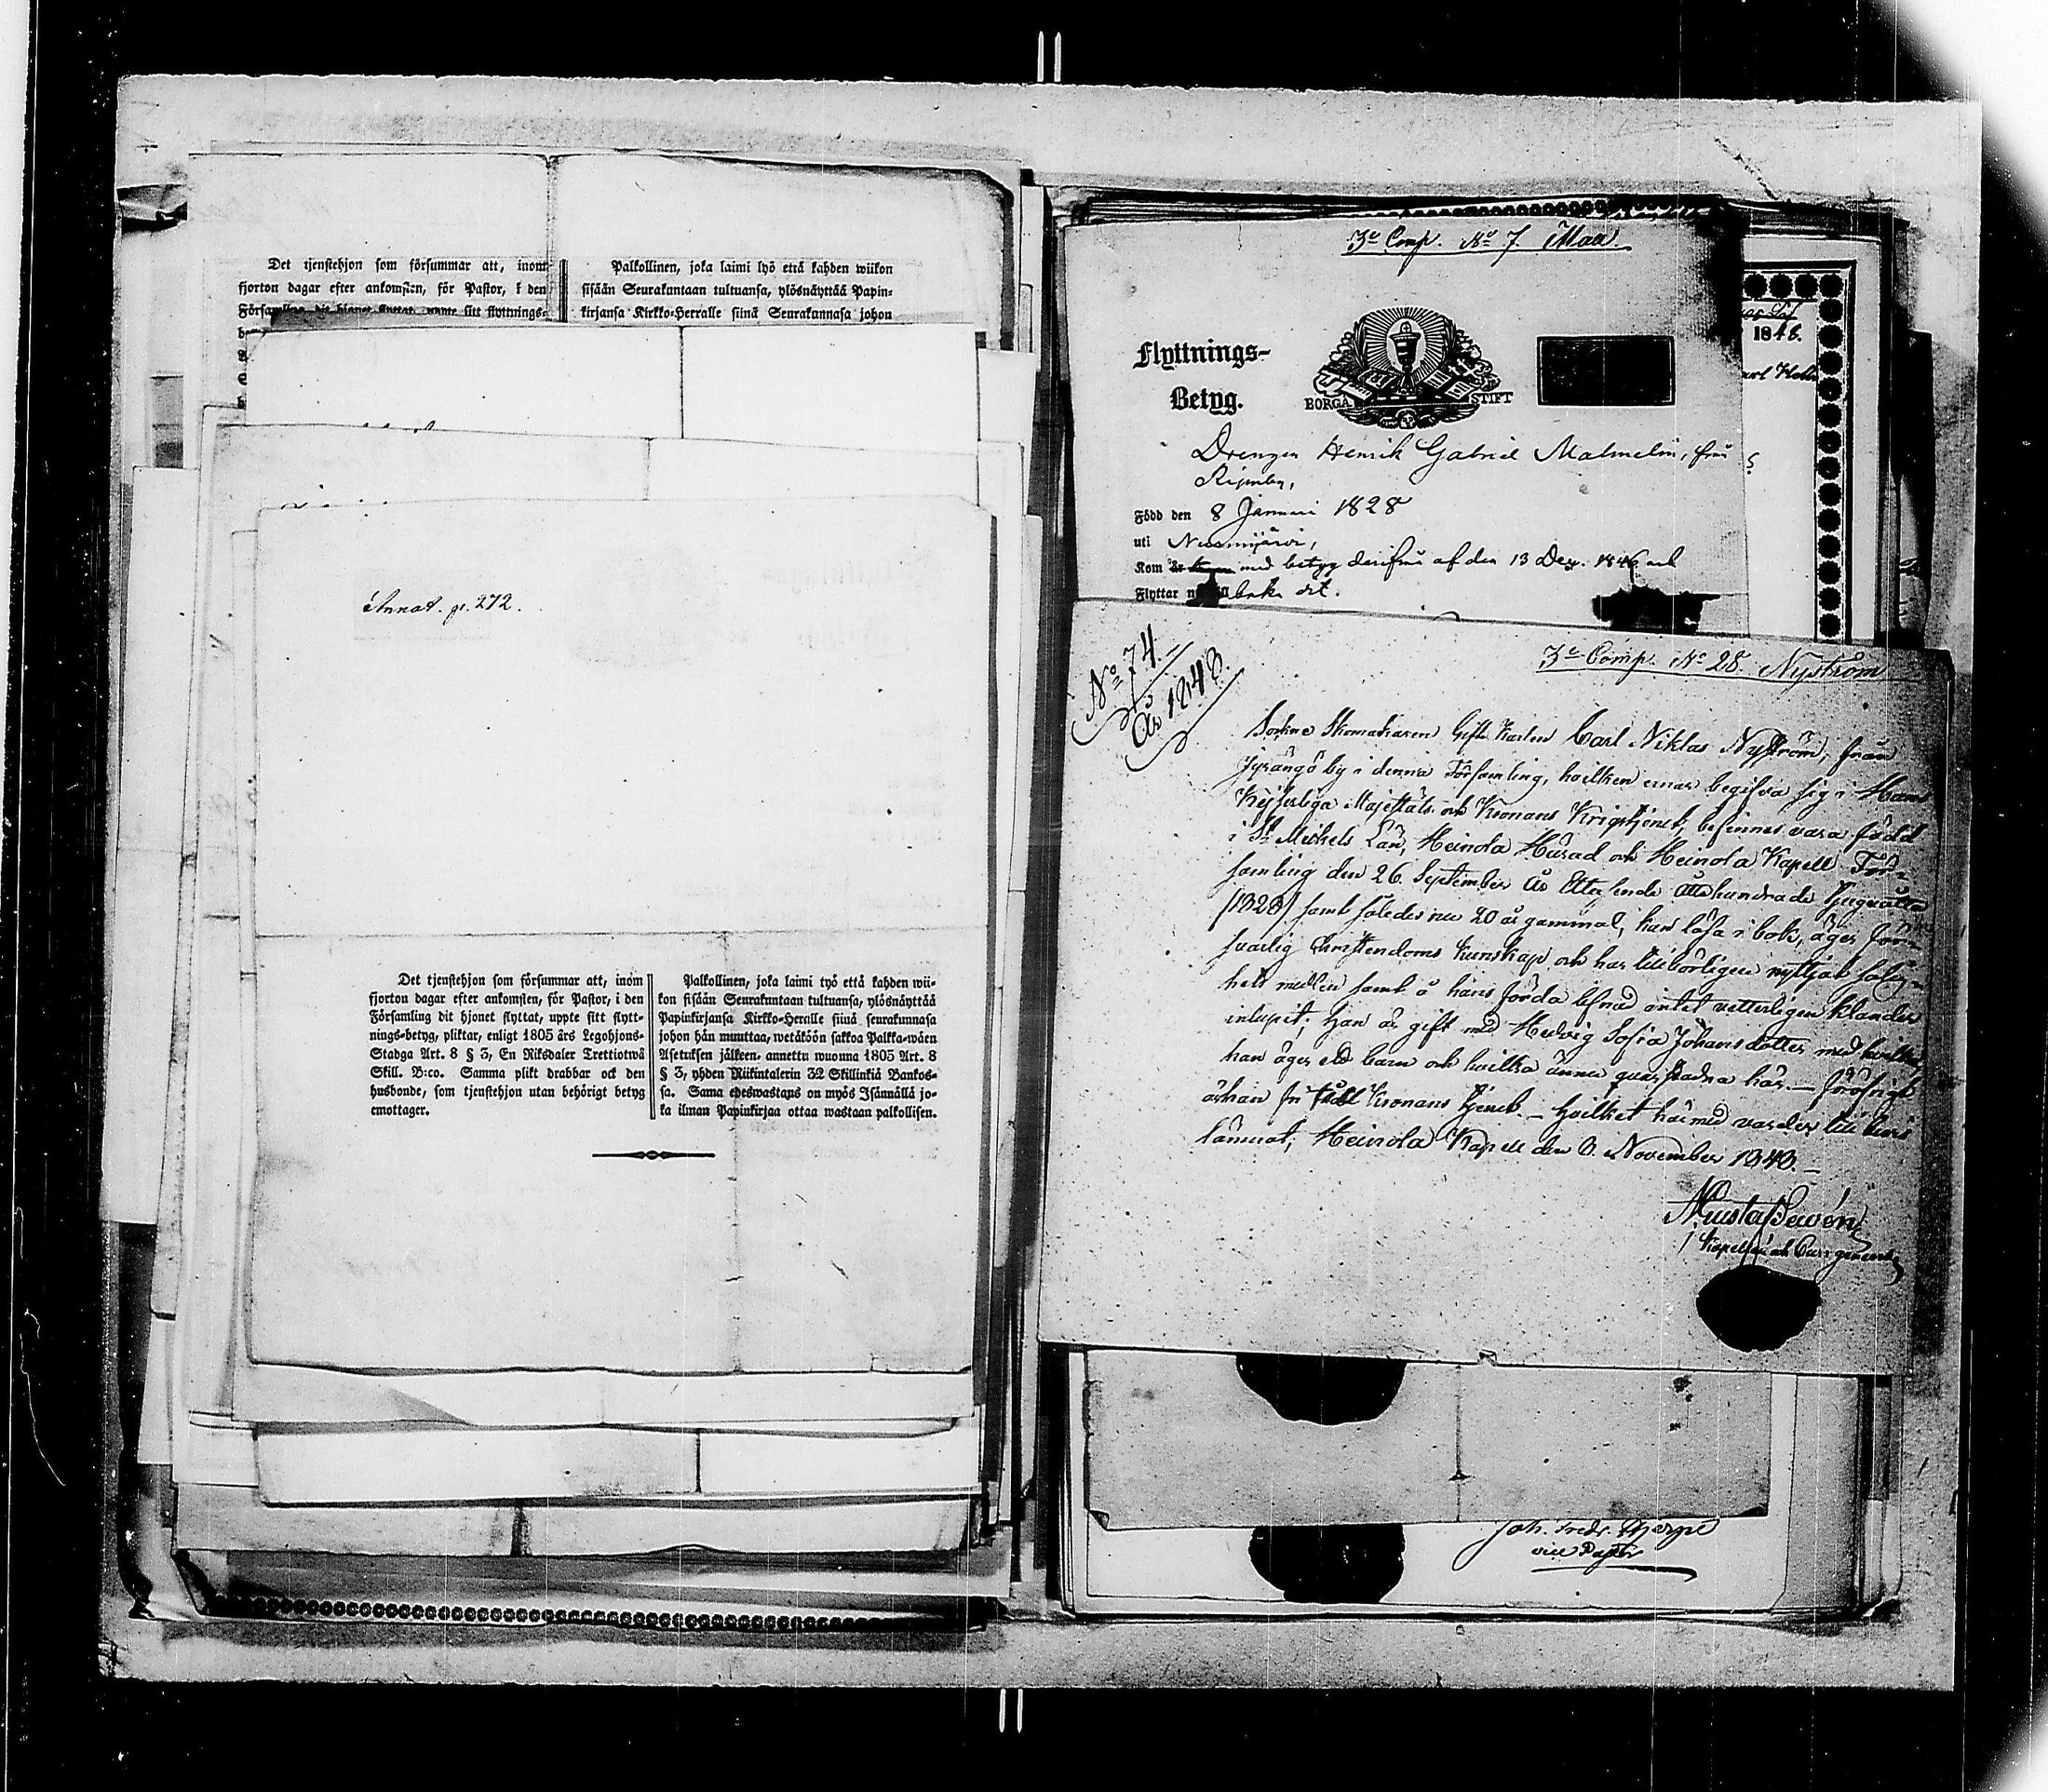 Det tjenstehjon som försummar att, inom
fjorton dagar efter ankomsten, för Pastor, i den
Palkollinen, joka laimi lyö että kahden wiikon
sisään Seurakuntaan tultuansa, ylösnäyttää Papin-
kirjansa Kirkko-Herralle siinä Seurakunnasa johon
Annot. p. 272.
Det tjenstehjon som försummar att, inom
fjorton dagar efter ankomsten, för Pastor, i den
Församling dit hjonet flyttat, uppte sitt flytt-
nings-betyg, pliktar, enligt 1805 års Legohjons-
Stadga Art. 8 § 3, En Riksdaler Trettiotwå
Skill. B:co. Samma plikt drabbar ock den
husbonde, som tjenstehjon utan behörigt betyg
emottager.
Palkollinen, joka laimi työ että kahden wii-
kon sisään Seurakuntaan tultuansa, ylösnäyttää
Papinkirjansa Kirkko-Heralle siinä seurakunnasa
johon hän muuttaa, wetäköön sakkoa Palkka-wäen
Asetuksen jälkeen, annettu wuonna 1805 Art. 8
§ 3, yhden Riikintalerin 32 Skillinkiä Bankos-
sa. Sama edeswastaus on myös Isännällä jo-
ka ilman Papinkirjaa ottaa wastaan palkollisen.
3e Comp. No 7. Maa.
Flyttnings-
Betyg.
BORGÅ STIFT
Drengen Henrik Gabriel Malmelin, från
Född den 8 Januari 1828
uti Nurmijärvi,
Kom med betyg derifrån af den 13 Dec. 1846 och
Flyttar
1848.
3e Comp. No 28. Nyström
No 74.
År 1848.
Sockne Skomakaren Gifte Karlen Carl Niklas Nyström, från
Jyrängö by i denna Församling, hvilken ernar begifva sig i Hans
Kejserliga Majestäts och Kronans Krigstjenst, befinnes vara född
i St Michels Län, Heinola Härad och Heinola Kapell För-
samling den 26. September År Ettusende åttahundrade tjuguåtta
/1828/ samt således nu 20 år gammal, kan läsa i bok, ägerför-
svarlig Christendoms kunskap och har tillbörligen nyttjat salig-
hets medlen samt å hans förda lefnad intet vetterligen klander
inlupit; han är gift med Hedvig Sofia Johansdotter med hvilken
han äger ett barn och hvilka ännu quarstadna här. — För öfrigt
är han fri till Kronans tjenst — hvilket härmed varder till bevis
lämnat; Heinola Kapell den 8. November 1848. —
Joh. Fredr.
vice Pastor